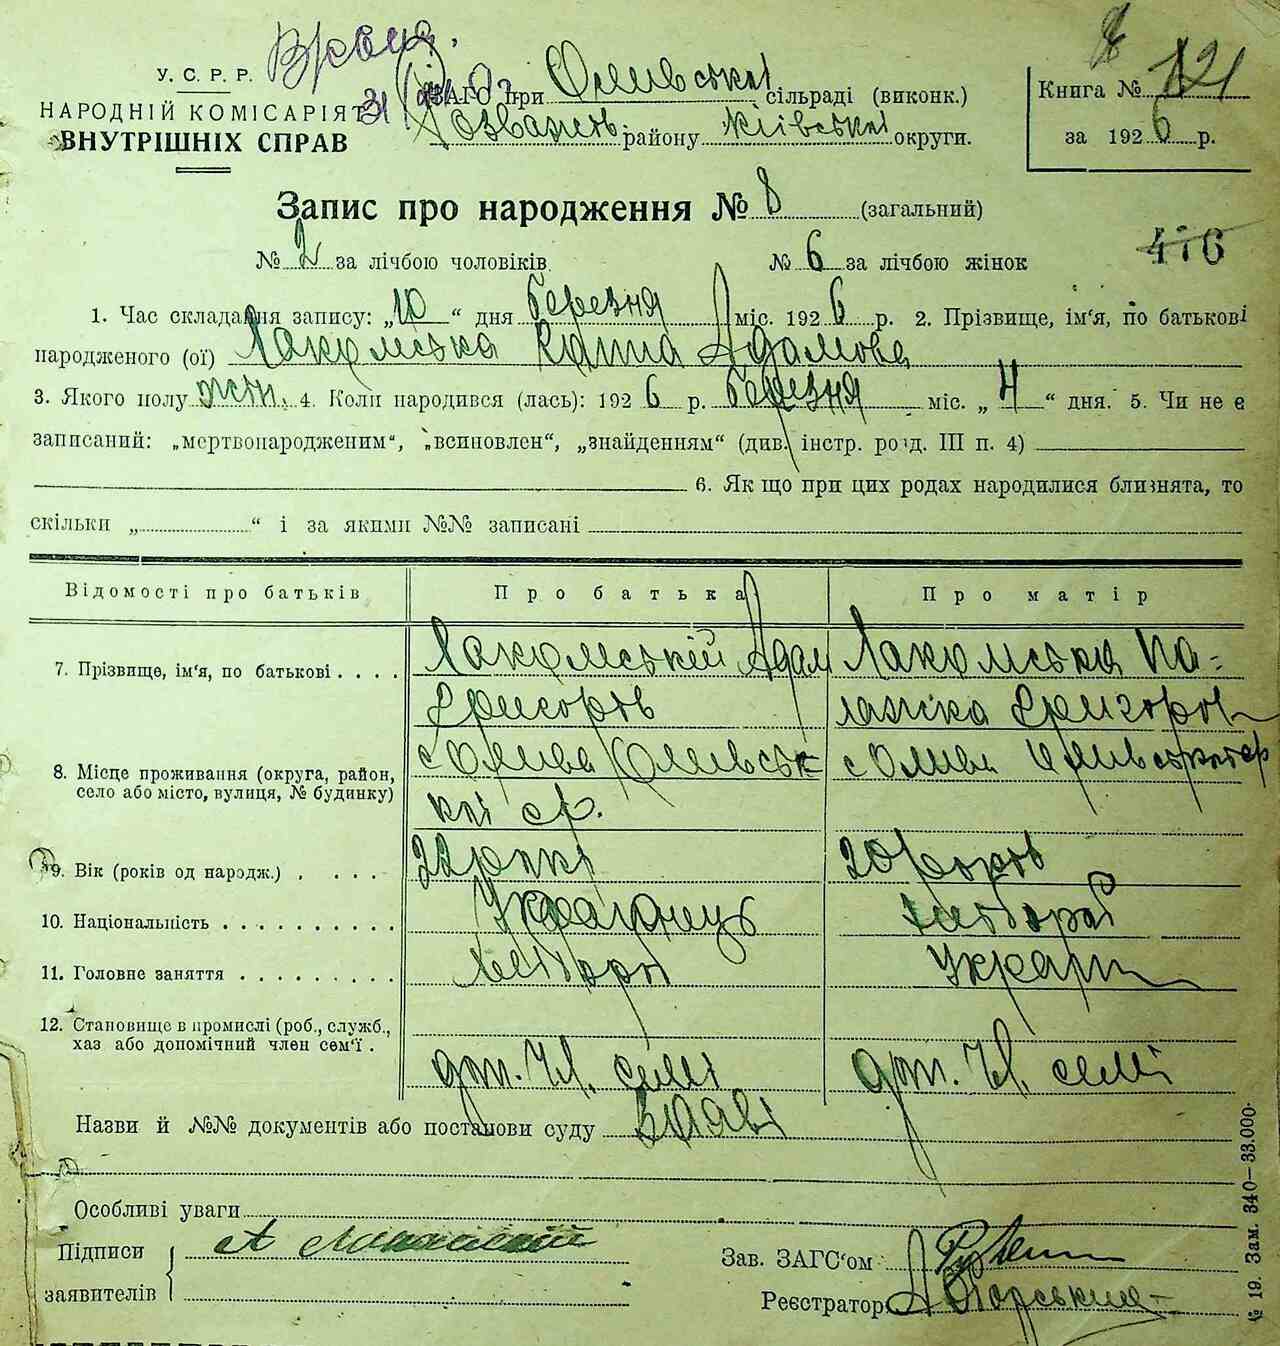 У. С. Р. Р.
НАРОДНІЙ КОМІСАРІЯТ
ВНУТРІШНІХ СПРАВ
ЗАГС при Оливській сільраді (виконк.)
району Київської округи.
Книга № 121
за 1926 р.
Запис про народження № 8 (загальний)
№ 2 за лічбою чоловіків № 6 за лічбою жінок
476
1. Час складання запису: „10“ дня березня міс. 1926 р. 2. Прізвище, ім'я, по батькові
народженого (ої) Лакомська Ганна Адамова
3. Якого полу жін. 4. Коли народився (лась): 1926 р. березня міс. „4“ дня. 5. Чи не є
записаний: „мертвонародженим“, „всиновлен“, „знайденням“ (див. інстр. розд. III п. 4)
6. Як що при цих родах народилися близнята, то
скільки „ “ і за якими №№ записані
Відомості про батьків Про батька Про матір
7. Прізвище, ім'я, по батькові Лакомській Адам Лакомська Па-
Григоров лажка Григоров
8. Місце проживання (округа, район, с Олива Оливсь с Олива
село або місто, вулиця, № будинку) кої ср.
9. Вік (років од народж.) 22 рокі 20 років
10. Національність Українець хлібороб
11. Головне заняття хлібороб Україн
12. Становище в промислі (роб., служб.,
хаз або допомічний член сем'ї. доп. чл. семі доп. чл. семі
Назви й №№ документів або постанови суду Заяві
Особливі уваги
Підписи А Лакомский Зав. ЗАГС'ом
заявителів Реєстратор
№ 19. Зам. 340—33.000.